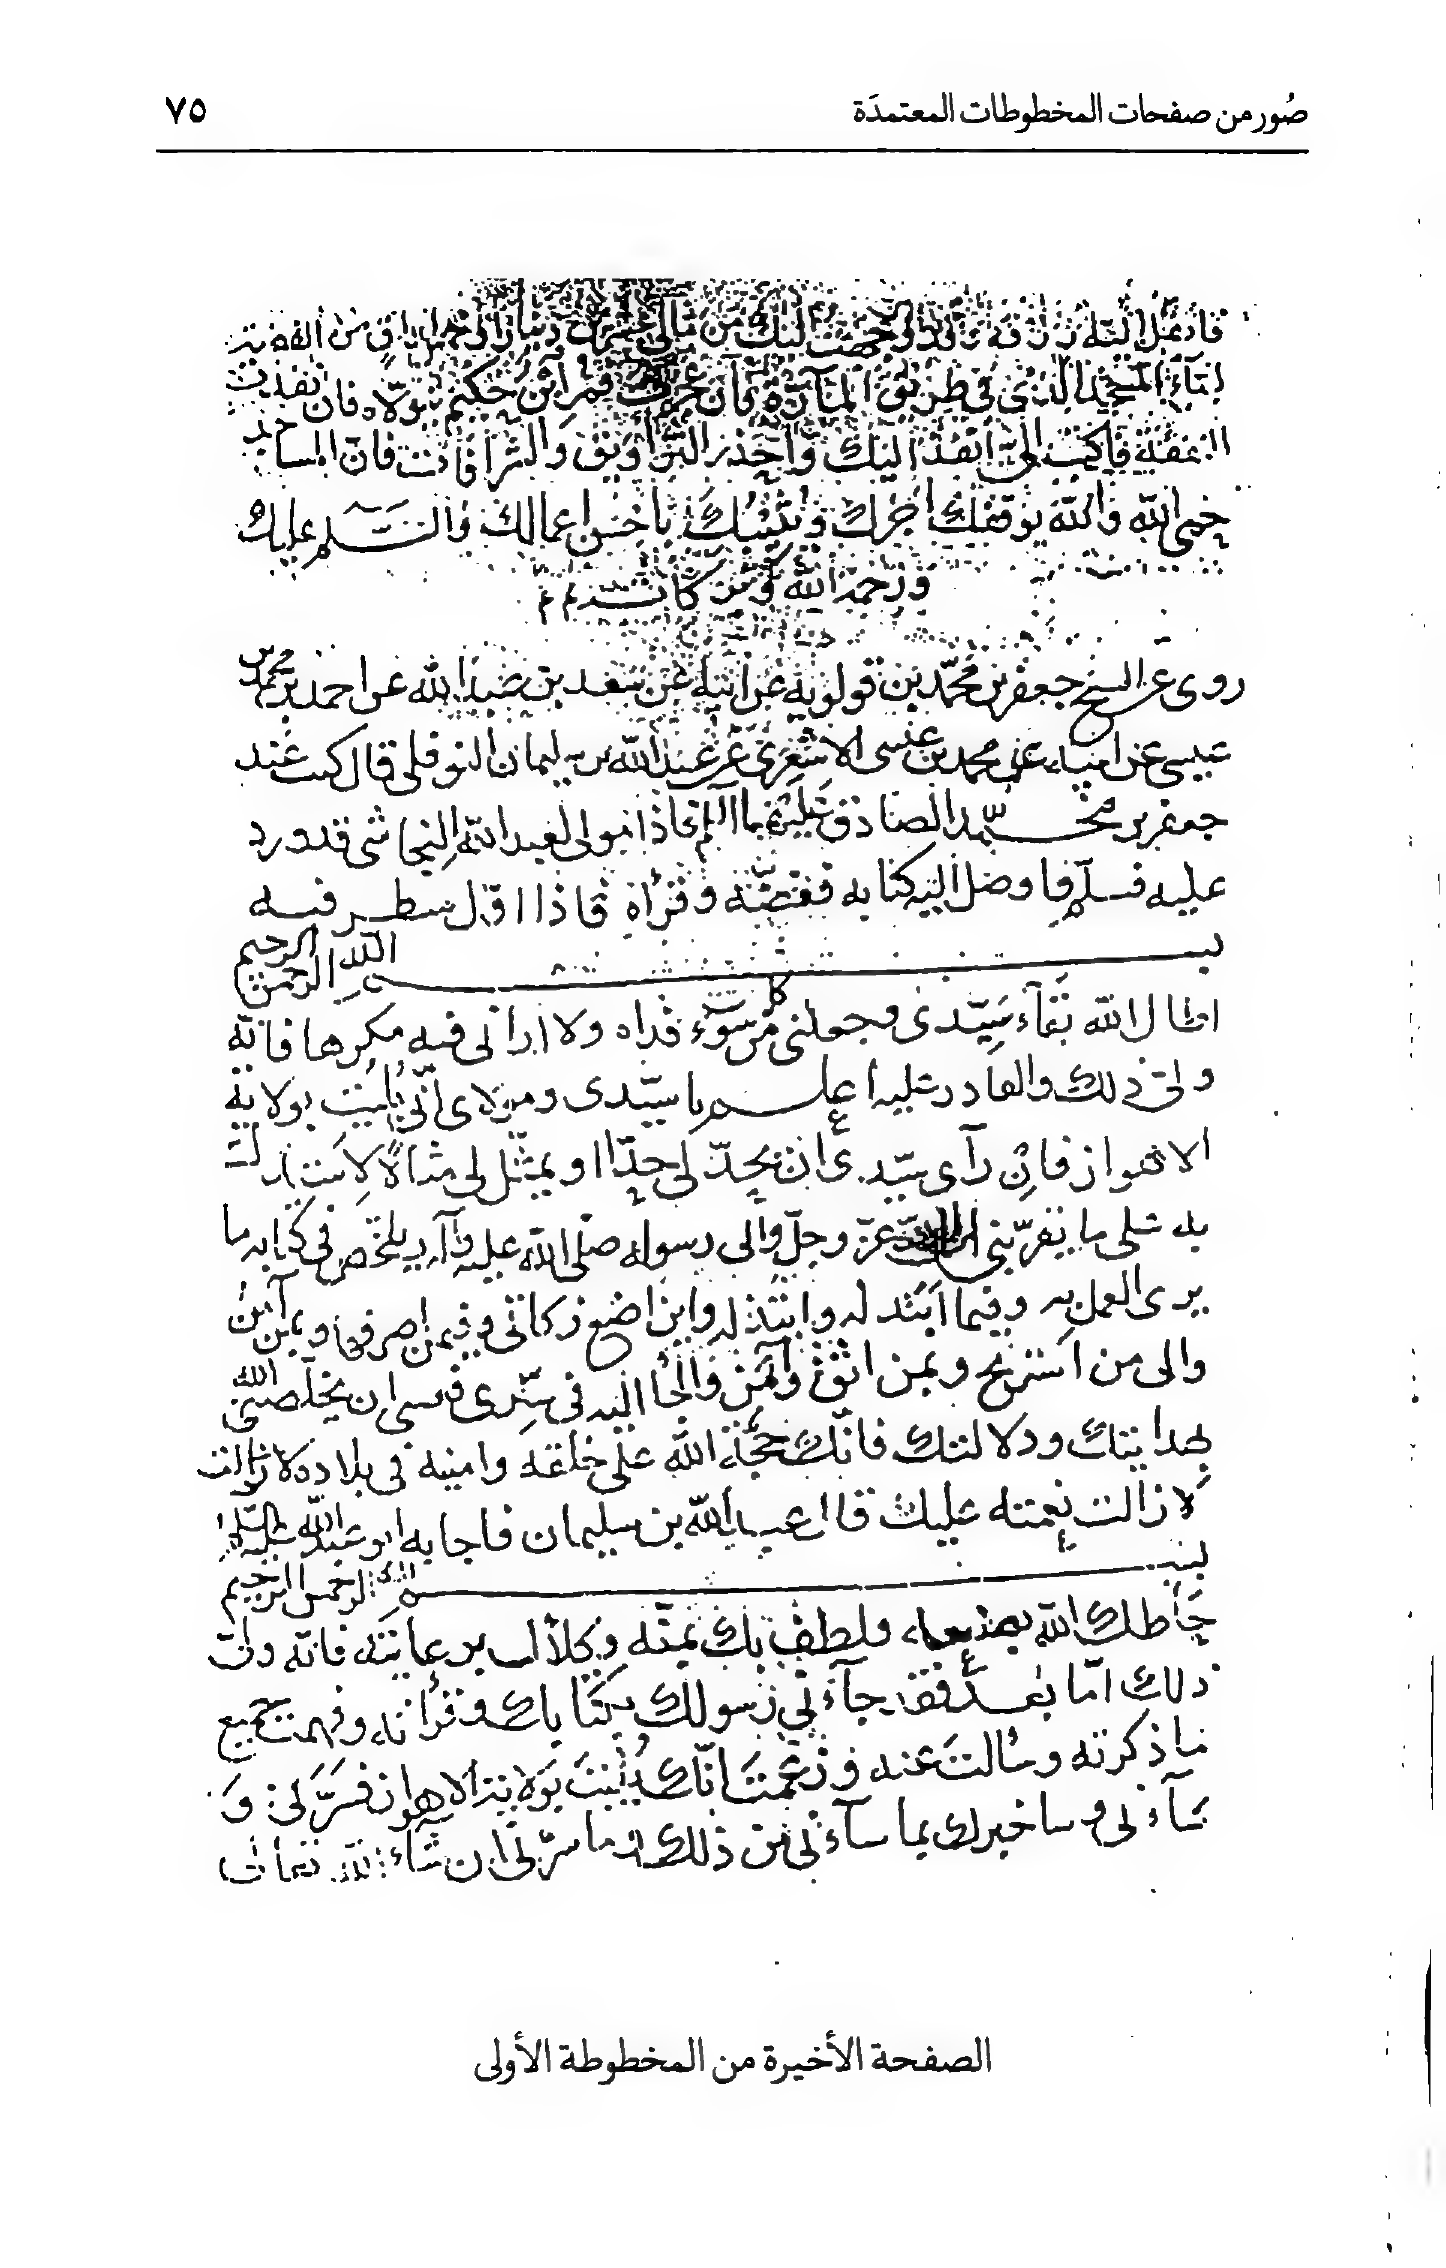 صُور من صفحات المخطوطات المعتمدَة
٧٥
اليك من مالي دينارا
المسجد الذي في طريق المنارة وان فمر ابن حكيم يتولاه فان نفذت
النفقة فاكتب الي انفذ اليك واحذر البزا ويق والشرا فان المساجد
حمى الله والله يوفقك اجرك باحسن اعمالك والسلم عليك
ورحمة الله
روى عن الشيخ جعفر بن محمد بن قولويه عن ابيه عن سعد بن عبد الله عن احمد بن محمد بن
عيسى عن ابيه عن محمد بن عيسى الاشعري عن عبد الله بن سليمان النوفلي قال كنت عند
جعفر بن محمد الصادق عليهما السلم فاذا بمولى لعبد الله النجاشي قد ورد
عليه فسلم واوصل اليه كتابه ففضه وقرأه فاذا اول سطر فيه
بسم الله الرحمن الرحيم
اطال الله بقاء سيدى وجعلنى من كل سوء فداه ولا ارانى فيه مكرها فانه
ولى ذلك والقادر عليه اعلم يا سيدى ومولاى انى بليت بولاية
الاهواز فان رآى سيدى ان يحدّ لى حدّا او يمثّل لى مثالا لاستدل
به على ما يقربنى الى الله عز وجل والى رسوله صلى الله عليه وآله ويلخص فى كتابه ما
يرى العمل به وفيما ابتدله وابتذله واين اضع زكاتى وفيمن اصرفها وبمن آنس
والى من استريح وبمن اثق وآمن والجأ اليه فى سرى فعسى ان يخلصنى الله
بهدايتك ودلالتك فانك حجة الله على خلقه وامينه فى بلاده لا زالت
لا زالت نعمته عليك قال عبد الله بن سليمان فاجابه ابو عبد الله عليه السلم
بسم الله الرحمن الرحيم
حاطك الله بصنعه ولطف بك بمنّه وكلأك برعايته فانه ولى
ذلك امّا بعد فقد جآءنى رسولك بكتابك وقرأته وفهمت جميع
ما ذكرته وسالت عنه وزعمت انك بليت بولاية الاهواز فسرّنى و
سآءنى وساخبرك بما سآءنى من ذلك وما سرّنى ان شآء الله تعالى
الصفحة الأخيرة من المخطوطة الأولى